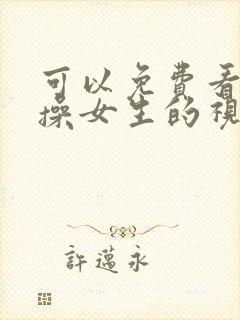 可以免費看
操女生的視
許邁永